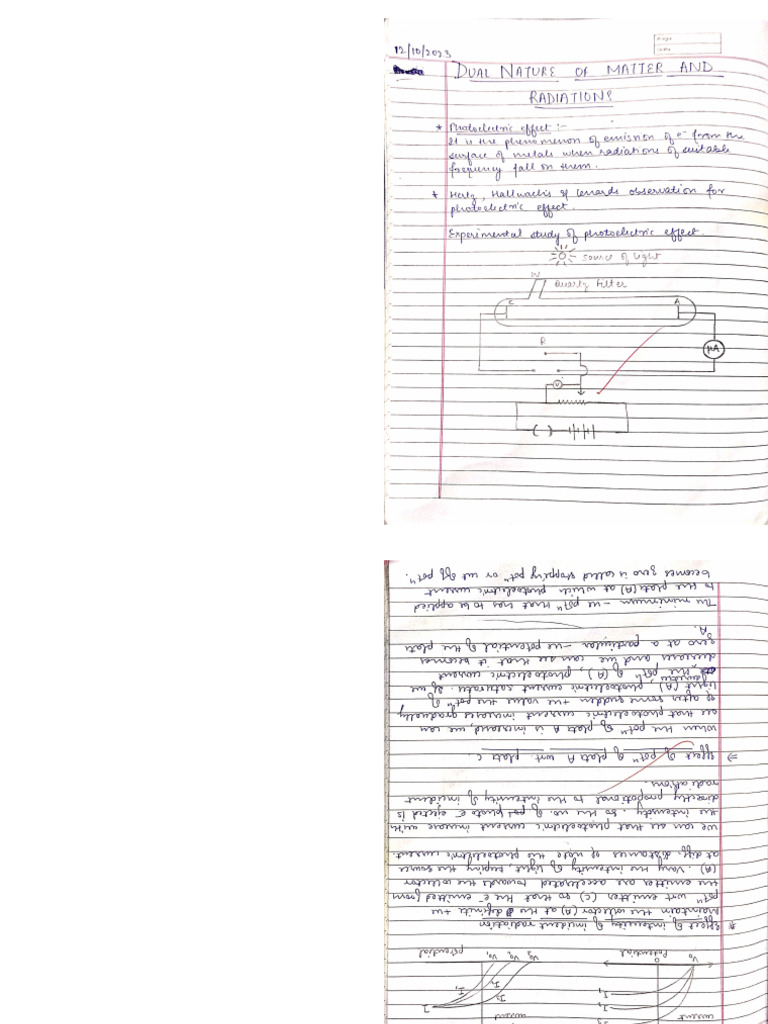 12/10/2023
DUAL NATURE OF MATTER AND
RADIATIONS
* Photoelectric effect :-
It is the phenomenon of emission of e⁻ from the
surface of metals when radiations of suitable
frequency fall on them.
* Hertz, Hallwachs & Lenards observation for
photoelectric effect.
Experimental study of photoelectric effect.
source of light
W
quartz filter
C
A
R
μA
V
current
I₃
I₂
I₁
V₀
0
Potential
current
I
I₃
I₂
I₁
V₃ V₂ V₀₁
potential
* Effect of intensity of incident radiation
Maintain the collector (A) at the definite +ve
potⁿ wrt emitter (C) so that the e⁻ emitted from
the emitter are accelerated towards the collector
(A). Vary the intensity of light, keeping the source
at diff distances & note the photoelectric current.
we can see that photoelectric current increase with
the intensity. So the no. of photo e⁻ ejected is
directly propotional to the intensity of incident
radiations.
⇒ Effect of potⁿ of plate A wrt. plate C
When the potⁿ of plate A is increased, we can
see that photoelectric current increase gradually
& after some sudden +ve value the potⁿ of
(A), photoelectric current saturates. If we
the potⁿ of (A), photoelectric current
decreases and we can see that it becomes
zero at a particular -ve potential of the plate
A.
The minimum -ve potⁿ that has to be applied
to the plate (A) at which photoelectric current
becomes zero is called stopping potⁿ or cut off potⁿ.